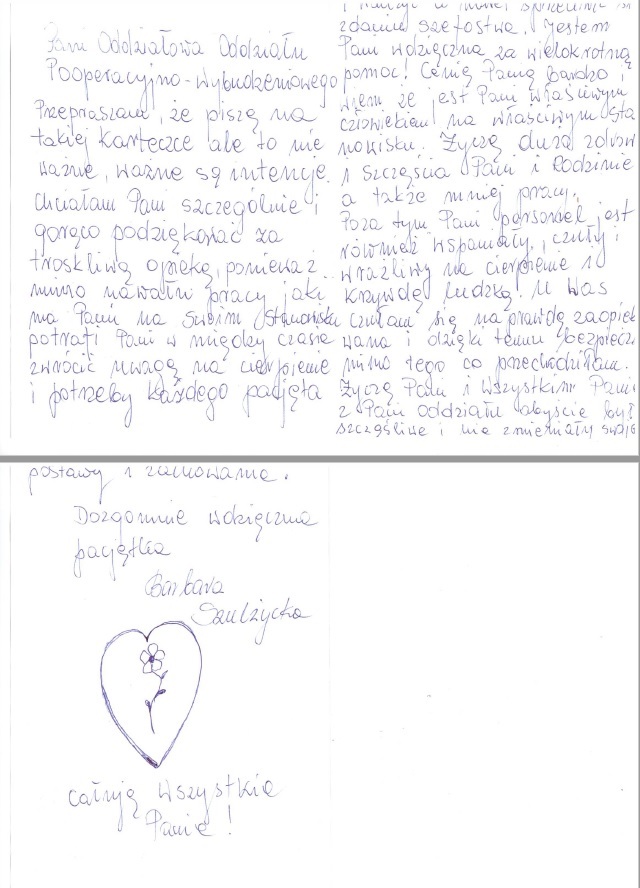 Pani Oddziałowa Oddziału
Pooperacyjno-wybudzeniowego
Przepraszam, że piszę na
takiej karteczce ale to nie
ważne, ważne są intencje.
Chciałam Pani szczególnie i
gorąco podziękować za
troskliwą opiekę, ponieważ
mimo nawału pracy jaki
ma Pani na swoim stanowisku
potrafi Pani w między czasie
zwrócić uwagę na cierpienie
i potrzeby każdego pacjęta
zdaniu szefostwa. Jestem
Pani wdzięczna za wielokrotną
pomoc! Cenię Panią bardzo i
wiem że jest Pani właściwym
człowiekiem na właściwym sta
nowisku. Życzę dużo zdrow
i szczęścia Pani i Rodzinie
a także mniej pracy.
Poza tym Pani personel jest
również wspaniały, czuły i
wrażliwy na cierpienie i
krzywdę ludzką. U Was
czułam się naprawdę zaopiek
wana i dzięki temu bezpiecz
mimo tego co przechodziłam.
Życzę Pani i wszystkim Pani
z Pani oddziału abyście był
szczęśliwe i nie zmieniały swojo
postawy i zachowania.
Dozgonnie wdzięczna
pacjętka
Barbara
Szulżycka
całuję wszystkie
Panie!